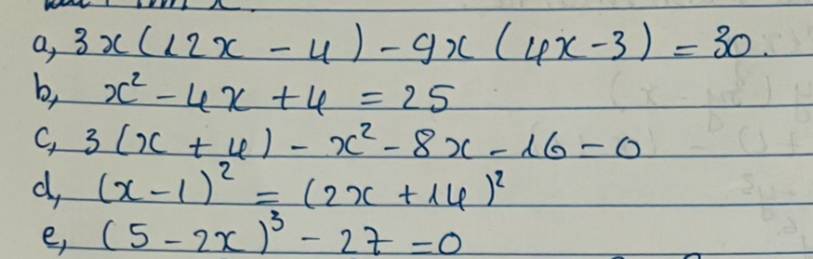 a, 3x(12x - 4) - 9x(4x - 3) = 30.
b, x² - 4x + 4 = 25
c, 3(x + 4) - x² - 8x - 16 = 0
d, (x - 1)² = (2x + 14)²
e, (5 - 2x)³ - 27 = 0